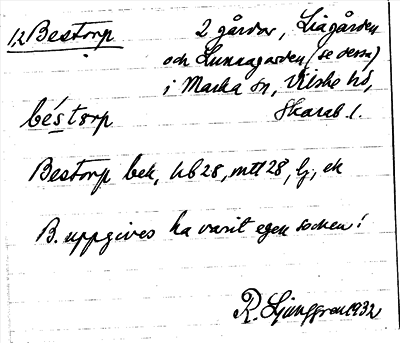 1,2 Bestorp 2 gårdar, Liagården
och Lunnagården (se dessa)
i Marka sn, Vilske hd,
Skarab. l.
béstorp
Bestorp bek, hb 28, mtl 28, lj, ek
B. uppgives ha varit egen socken!
R. Ljunggren 1932